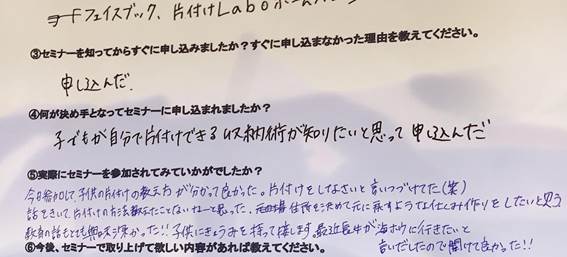 フェイスブック、片付けLaboホームペ
③セミナーを知ってからすぐに申し込みましたか？すぐに申し込まなかった理由を教えてください。
申し込んだ。
④何が決め手となってセミナーに申し込まれましたか？
子どもが自分で片付けできる収納術が知りたいと思って申し込んだ
⑤実際にセミナーを参加されてみていかがでしたか？
今日参加して、子供の片付けの教え方が分かって良かった。片付けをしなさいと言いつづけてた(笑)
話をきいて、片付けの方法教えたことないねーと思った。元の場住所を決めて元に戻すようなしくみ作りをしたいと思う
教育の話もとても興味深かった!!子供にきょうみを持って接します。最近長女が海ホウに行きたいと
言いだしたので聞けて良かった!!
⑥今後、セミナーで取り上げて欲しい内容があれば教えてください。